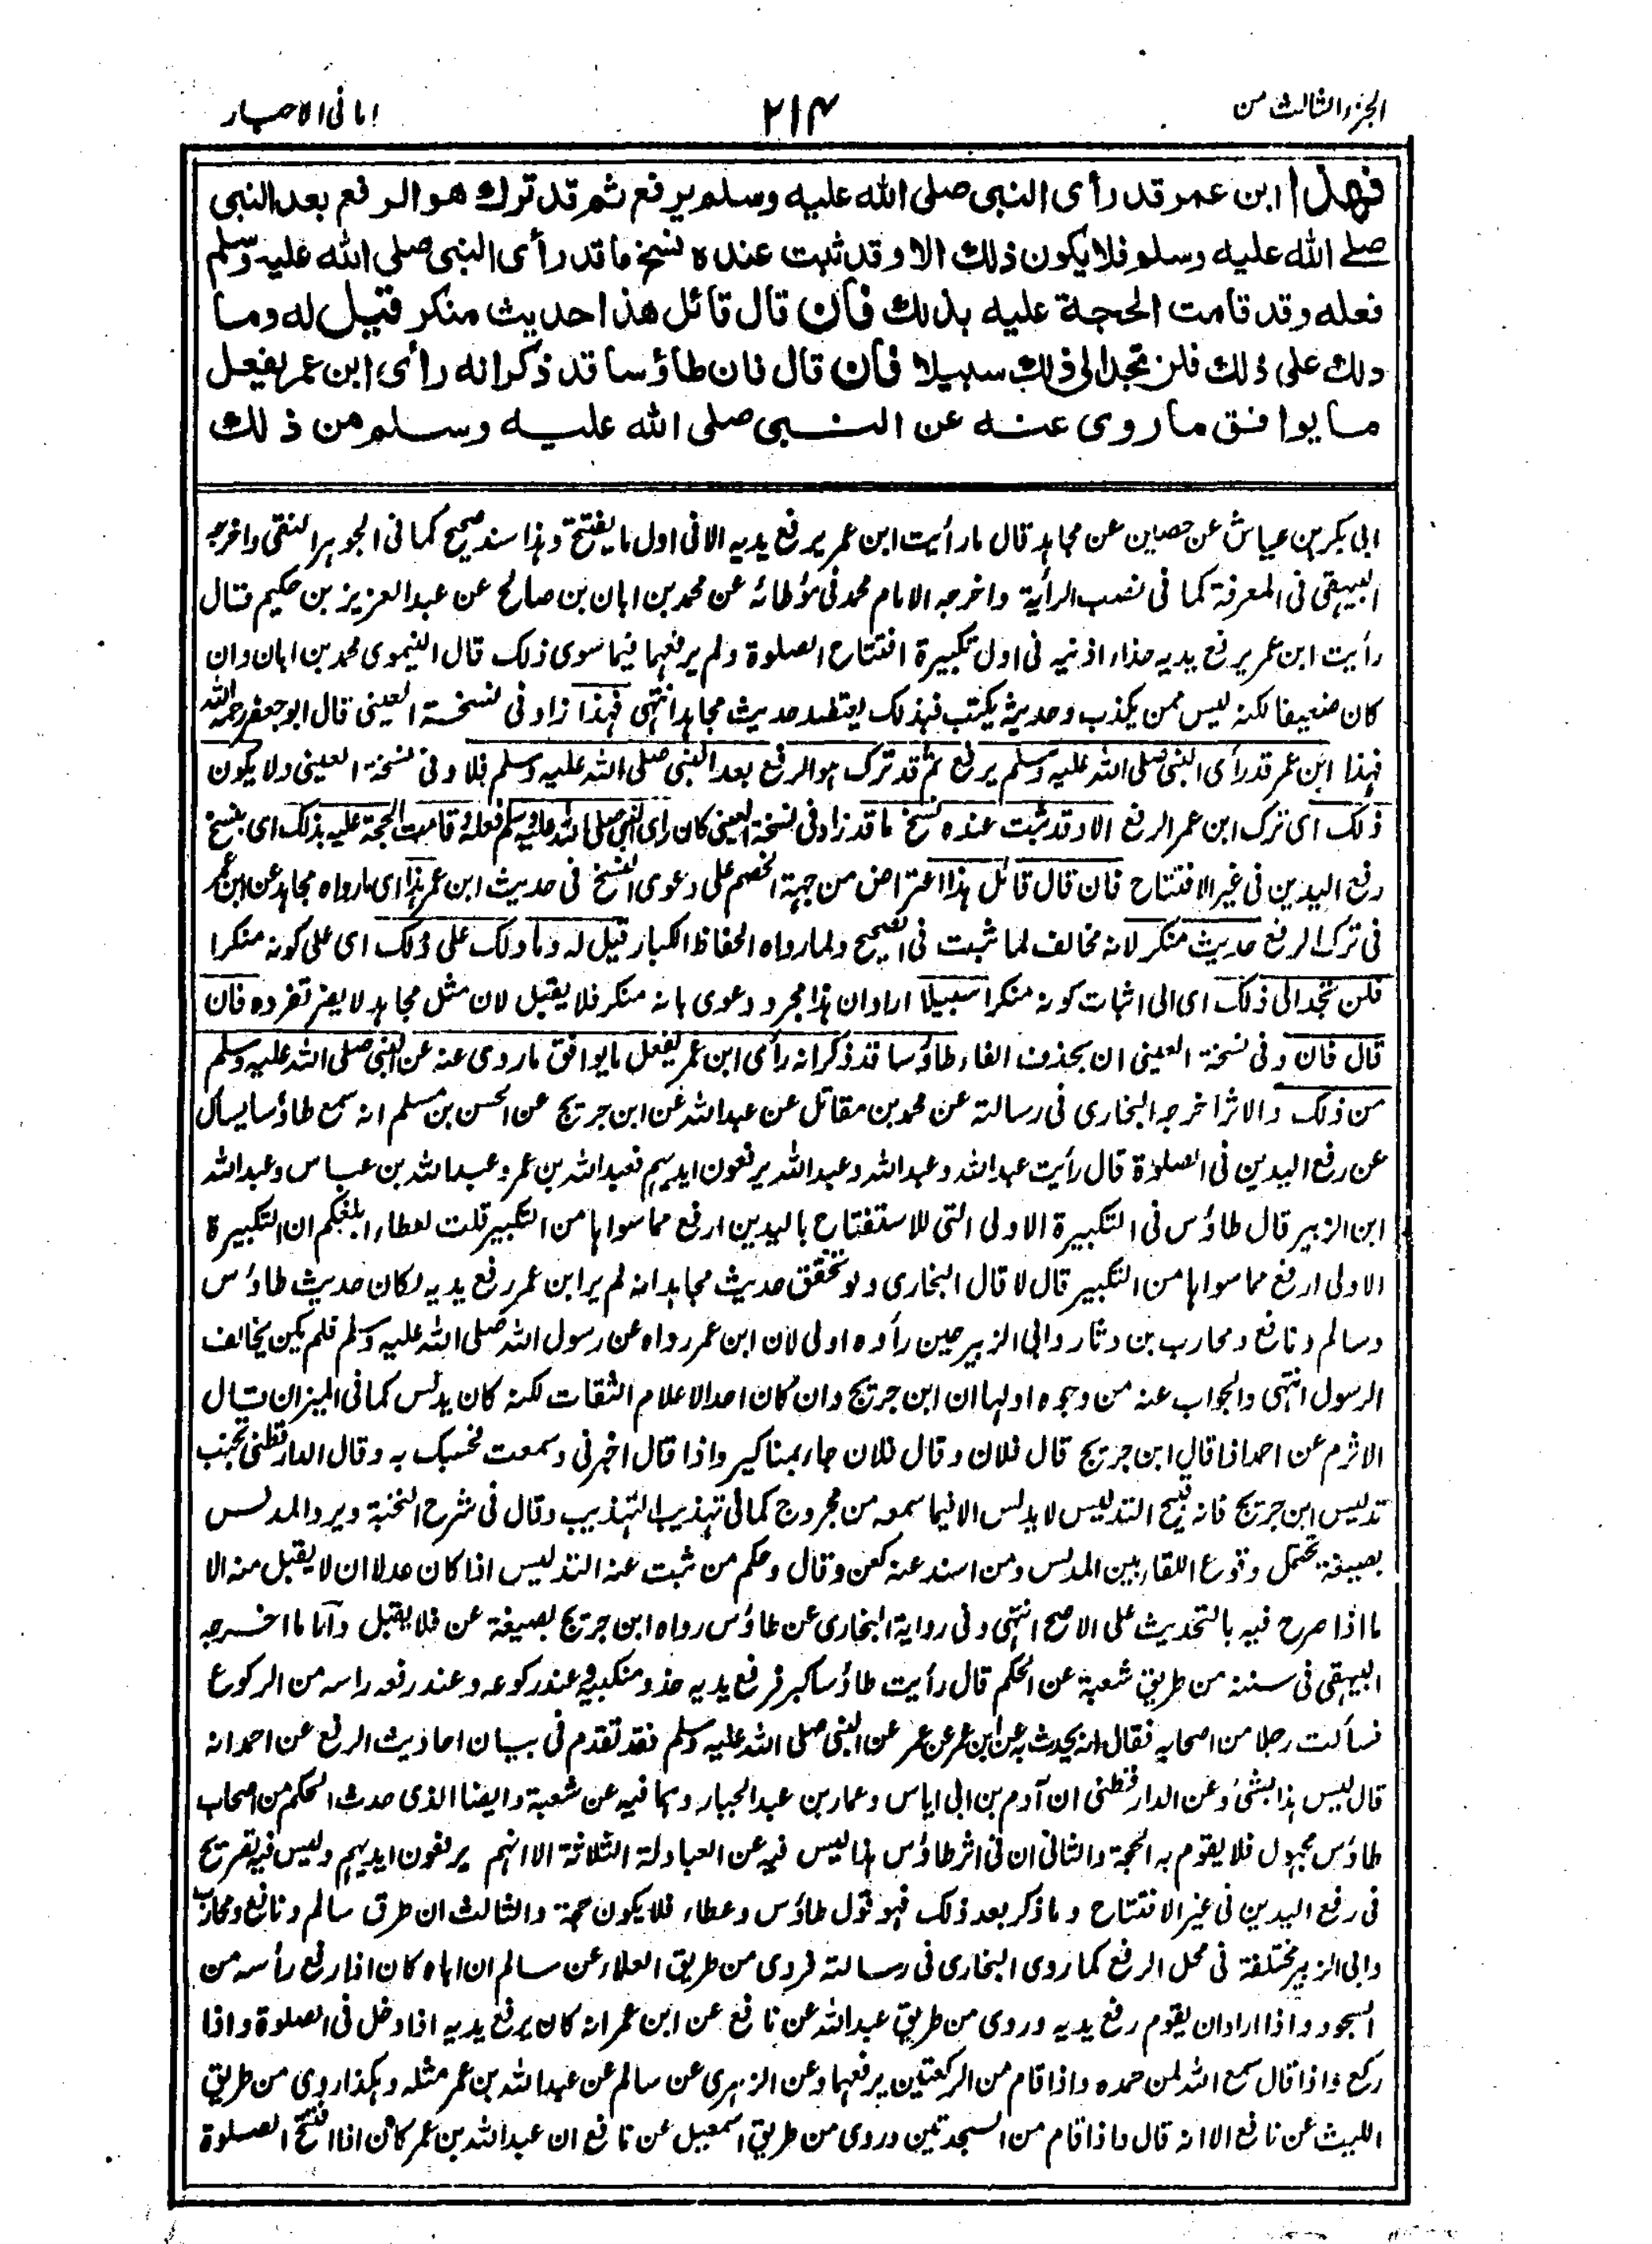 الجزء الثالث من
٢١٤
امانی الاحبار
فهذا ابن عمر قد رأى النبی صلی الله علیه وسلم یرفع ثم قد ترك هو الرفع بعد النبی
صلے الله علیه وسلم فلا یکون ذلك الا وقد ثبت عنده نسخ ما قد رأى النبی صلی الله علیه وسلم
فعله وقد قامت الحجة علیه بذلك فان قال قائل هذا حدیث منکر قیل له وما
دلك على ذلك فلن تجد الی ذلك سبیلا فان قال فان طاؤسا قد ذکر انه رأى ابن عمر یفعل
ما یوافق ما روى عنه عن النبی صلی الله علیه وسلم من ذلك
ابی بکر بن عیاش عن حصین عن مجاہد قال ما رأیت ابن عمر یرفع یدیہ الا فی اول ما یفتتح وہذا سند صحیح کما فی الجوہر النقی واخرجہ
البیہقی فی المعرفۃ کما فی نصب الرأیۃ واخرجہ الامام محمد فی مؤطائہ عن محمد بن ابان بن صالح عن عبد العزیز بن حکیم قال
رأیت ابن عمر یرفع یدیہ حذاء اذنیہ فی اول تکبیرۃ افتتاح الصلوۃ ولم یرفعہما فیما سوی ذلک قال النیموی محمد بن ابان وان
کان ضعیفا لکنہ لیس ممن یکذب وحدیثہ یکتب فبذلک یعتضد حدیث مجاہد انتہی فہذا زاد فی نسخۃ العینی قال ابو جعفر رحمہ اللہ
فہذا ابن عمر قد رأی النبی صلی اللہ علیہ وسلم یرفع ثم قد ترک ہو الرفع بعد النبی صلی اللہ علیہ وسلم فلا وفی نسخۃ العینی ولا یکون
ذلک ای ترک ابن عمر الرفع الا وقد ثبت عندہ نسخ ما قد زاد فی نسخۃ العینی کان رای النبی صلی اللہ علیہ وسلم فعلہ وقامت الحجۃ علیہ بذلک ای بنسخ
رفع الیدین فی غیر الافتتاح فان قال قائل ہذا اعتراض من جہۃ الخصم علی دعوی النسخ فی حدیث ابن عمر ہذا ای ما رواہ مجاہد عن ابن عمر
فی ترک الرفع حدیث منکر لانہ مخالف لما ثبت فی الصحیح ولما رواہ الحفاظ الکبار قیل لہ وما دلک علی ذلک ای علی کونہ منکرا
فلن تجد الی ذلک ای الی اثبات کونہ منکرا سبیلا اراد ان ہذا مجرد دعوی بانہ منکر فلا یقبل لان مثل مجاہد لا یضر تفردہ فان
قال فان وفی نسخۃ العینی ان بحذف الفاء طاؤسا قد ذکر انہ رأی ابن عمر یفعل ما یوافق ما روی عنہ عن النبی صلی اللہ علیہ وسلم
من ذلک والاثر اخرجہ البخاری فی رسالتہ عن محمد بن مقاتل عن عبد اللہ عن ابن جریج عن الحسن بن مسلم انہ سمع طاؤسا یسأل
عن رفع الیدین فی الصلوۃ قال رأیت عبد اللہ وعبد اللہ وعبد اللہ یرفعون ایدیہم فعبد اللہ بن عمر وعبد اللہ بن عباس وعبد اللہ
ابن الزبیر قال طاؤس فی التکبیرۃ الاولی التی للاستفتاح بالیدین ارفع مما سواہا من التکبیر قلت لعطاء ابلغکم ان التکبیرۃ
الاولی ارفع مما سواہا من التکبیر قال لا قال البخاری ولو تحقق حدیث مجاہد انہ لم یر ابن عمر رفع یدیہ لکان حدیث طاؤس
وسالم ونافع ومحارب بن دثار وابی الزبیر حین رأوہ اولی لان ابن عمر رواہ عن رسول اللہ صلی اللہ علیہ وسلم فلم یکن یخالف
الرسول انتہی والجواب عنہ من وجوہ اولہا ان ابن جریج وان کان احد الاعلام الثقات لکنہ کان یدلس کما فی المیزان قال
الاثرم عن احمد اذا قال ابن جریج قال فلان وقال فلان جاء بمناکیر واذا قال اخبرنی وسمعت فحسبک بہ وقال الدارقطنی تجنب
تدلیس ابن جریج فانہ قبیح التدلیس لا یدلس الا فیما سمعہ من مجروح کما فی تہذیب التہذیب وقال فی شرح النخبۃ ویرد المدلس
بصیغۃ تحتمل وقوع اللقاء بین المدلس ومن اسند عنہ کعن وقال وحکم من ثبت عنہ التدلیس اذا کان عدلا ان لا یقبل منہ الا
ما اذا صرح فیہ بالتحدیث علی الاصح انتہی وفی روایۃ البخاری عن طاؤس رواہ ابن جریج بصیغۃ عن فلا یقبل واما ما اخرجہ
البیہقی فی سننہ من طریق شعبۃ عن الحکم قال رأیت طاؤسا کبر فرفع یدیہ حذو منکبیہ عند رکوعہ وعند رفعہ راسہ من الرکوع
فسألت رجلا من اصحابہ فقال انہ یحدث بہ عن ابن عمر عن عمر عن النبی صلی اللہ علیہ وسلم فقد تقدم فی بیان احادیث الرفع عن احمد انہ
قال لیس ہذا بشئ وعن الدارقطنی ان آدم بن ابی ایاس وعمار بن عبد الجبار وہما فیہ عن شعبۃ وایضا الذی حدث الحکم من اصحاب
طاؤس مجہول فلا یقوم بہ الحجۃ والثانی ان فی اثر طاؤس ہذا لیس فیہ عن العبادلۃ الثلاثۃ الا انہم یرفعون ایدیہم ولیس فیہ تصریح
فی رفع الیدین فی غیر الافتتاح وما ذکر بعد ذلک فہو قول طاؤس وعطاء فلا یکون حجۃ والثالث ان طرق سالم ونافع ومحارب
وابی الزبیر مختلفۃ فی محل الرفع کما روی البخاری فی رسالتہ فروی من طریق العلاء عن سالم ان اباہ کان اذا رفع رأسہ من
السجود واذا اراد ان یقوم رفع یدیہ وروی من طریق عبد اللہ عن نافع عن ابن عمر انہ کان یرفع یدیہ اذا دخل فی الصلوۃ واذا
رکع واذا قال سمع اللہ لمن حمدہ واذا قام من الرکعتین یرفعہما وعن الزہری عن سالم عن عبد اللہ بن عمر مثلہ وہکذا روی من طریق
اللیث عن نافع الا انہ قال واذا قام من السجدتین وروی من طریق اسمعیل عن نافع ان عبد اللہ بن عمر کان اذا افتتح الصلوۃ